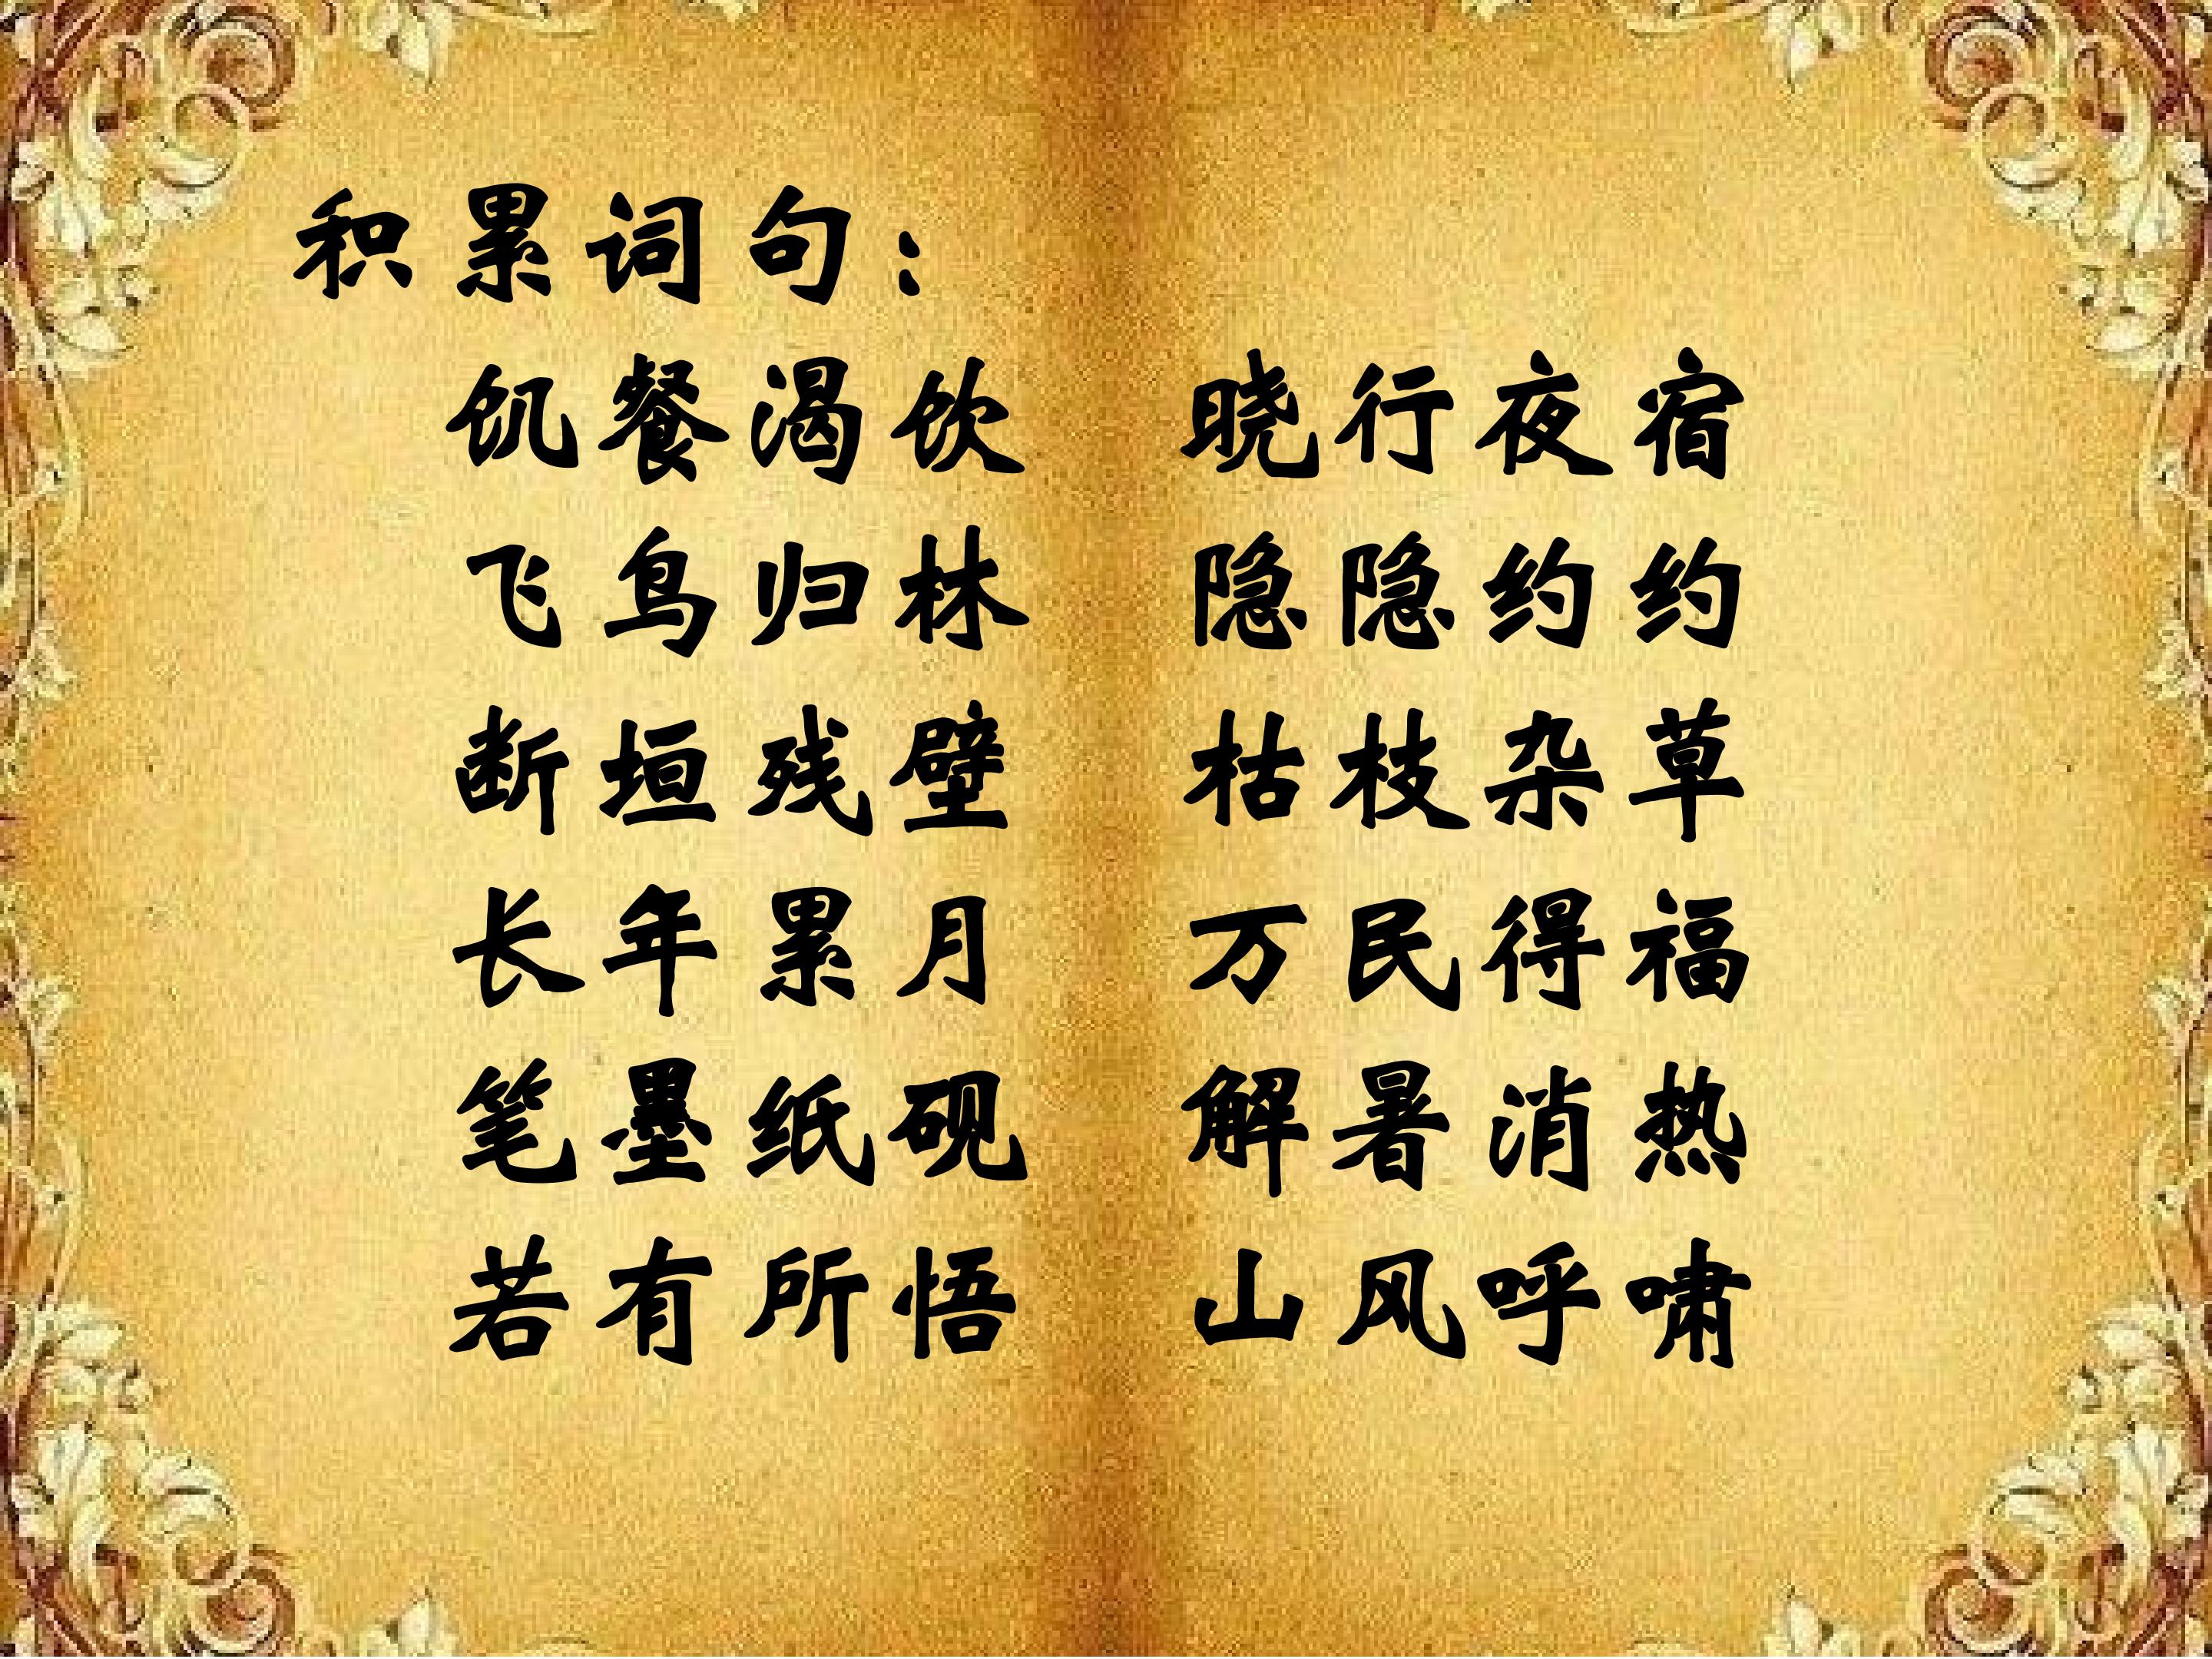 积累词句：
饥餐渴饮 晓行夜宿
飞鸟归林 隐隐约约
断垣残壁 枯枝杂草
长年累月 万民得福
笔墨纸砚 解暑消热
若有所悟 山风呼啸